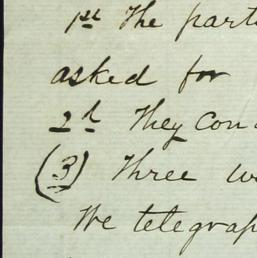 1st The part
asked for
2d They con
(3) Three w
We telegrap